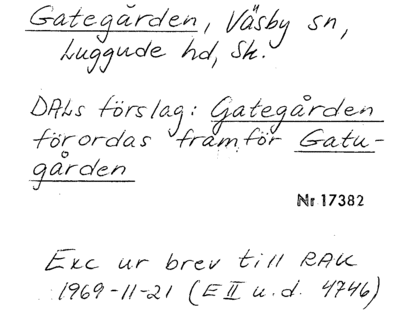 Gategården, Väsby sn,
Luggude hd, Sk.
DALs förslag: Gategården
förordas framför Gatu-
gården
Nr 17382
Exc ur brev till RAK
1969-11-21 (E II u.d. 4746)